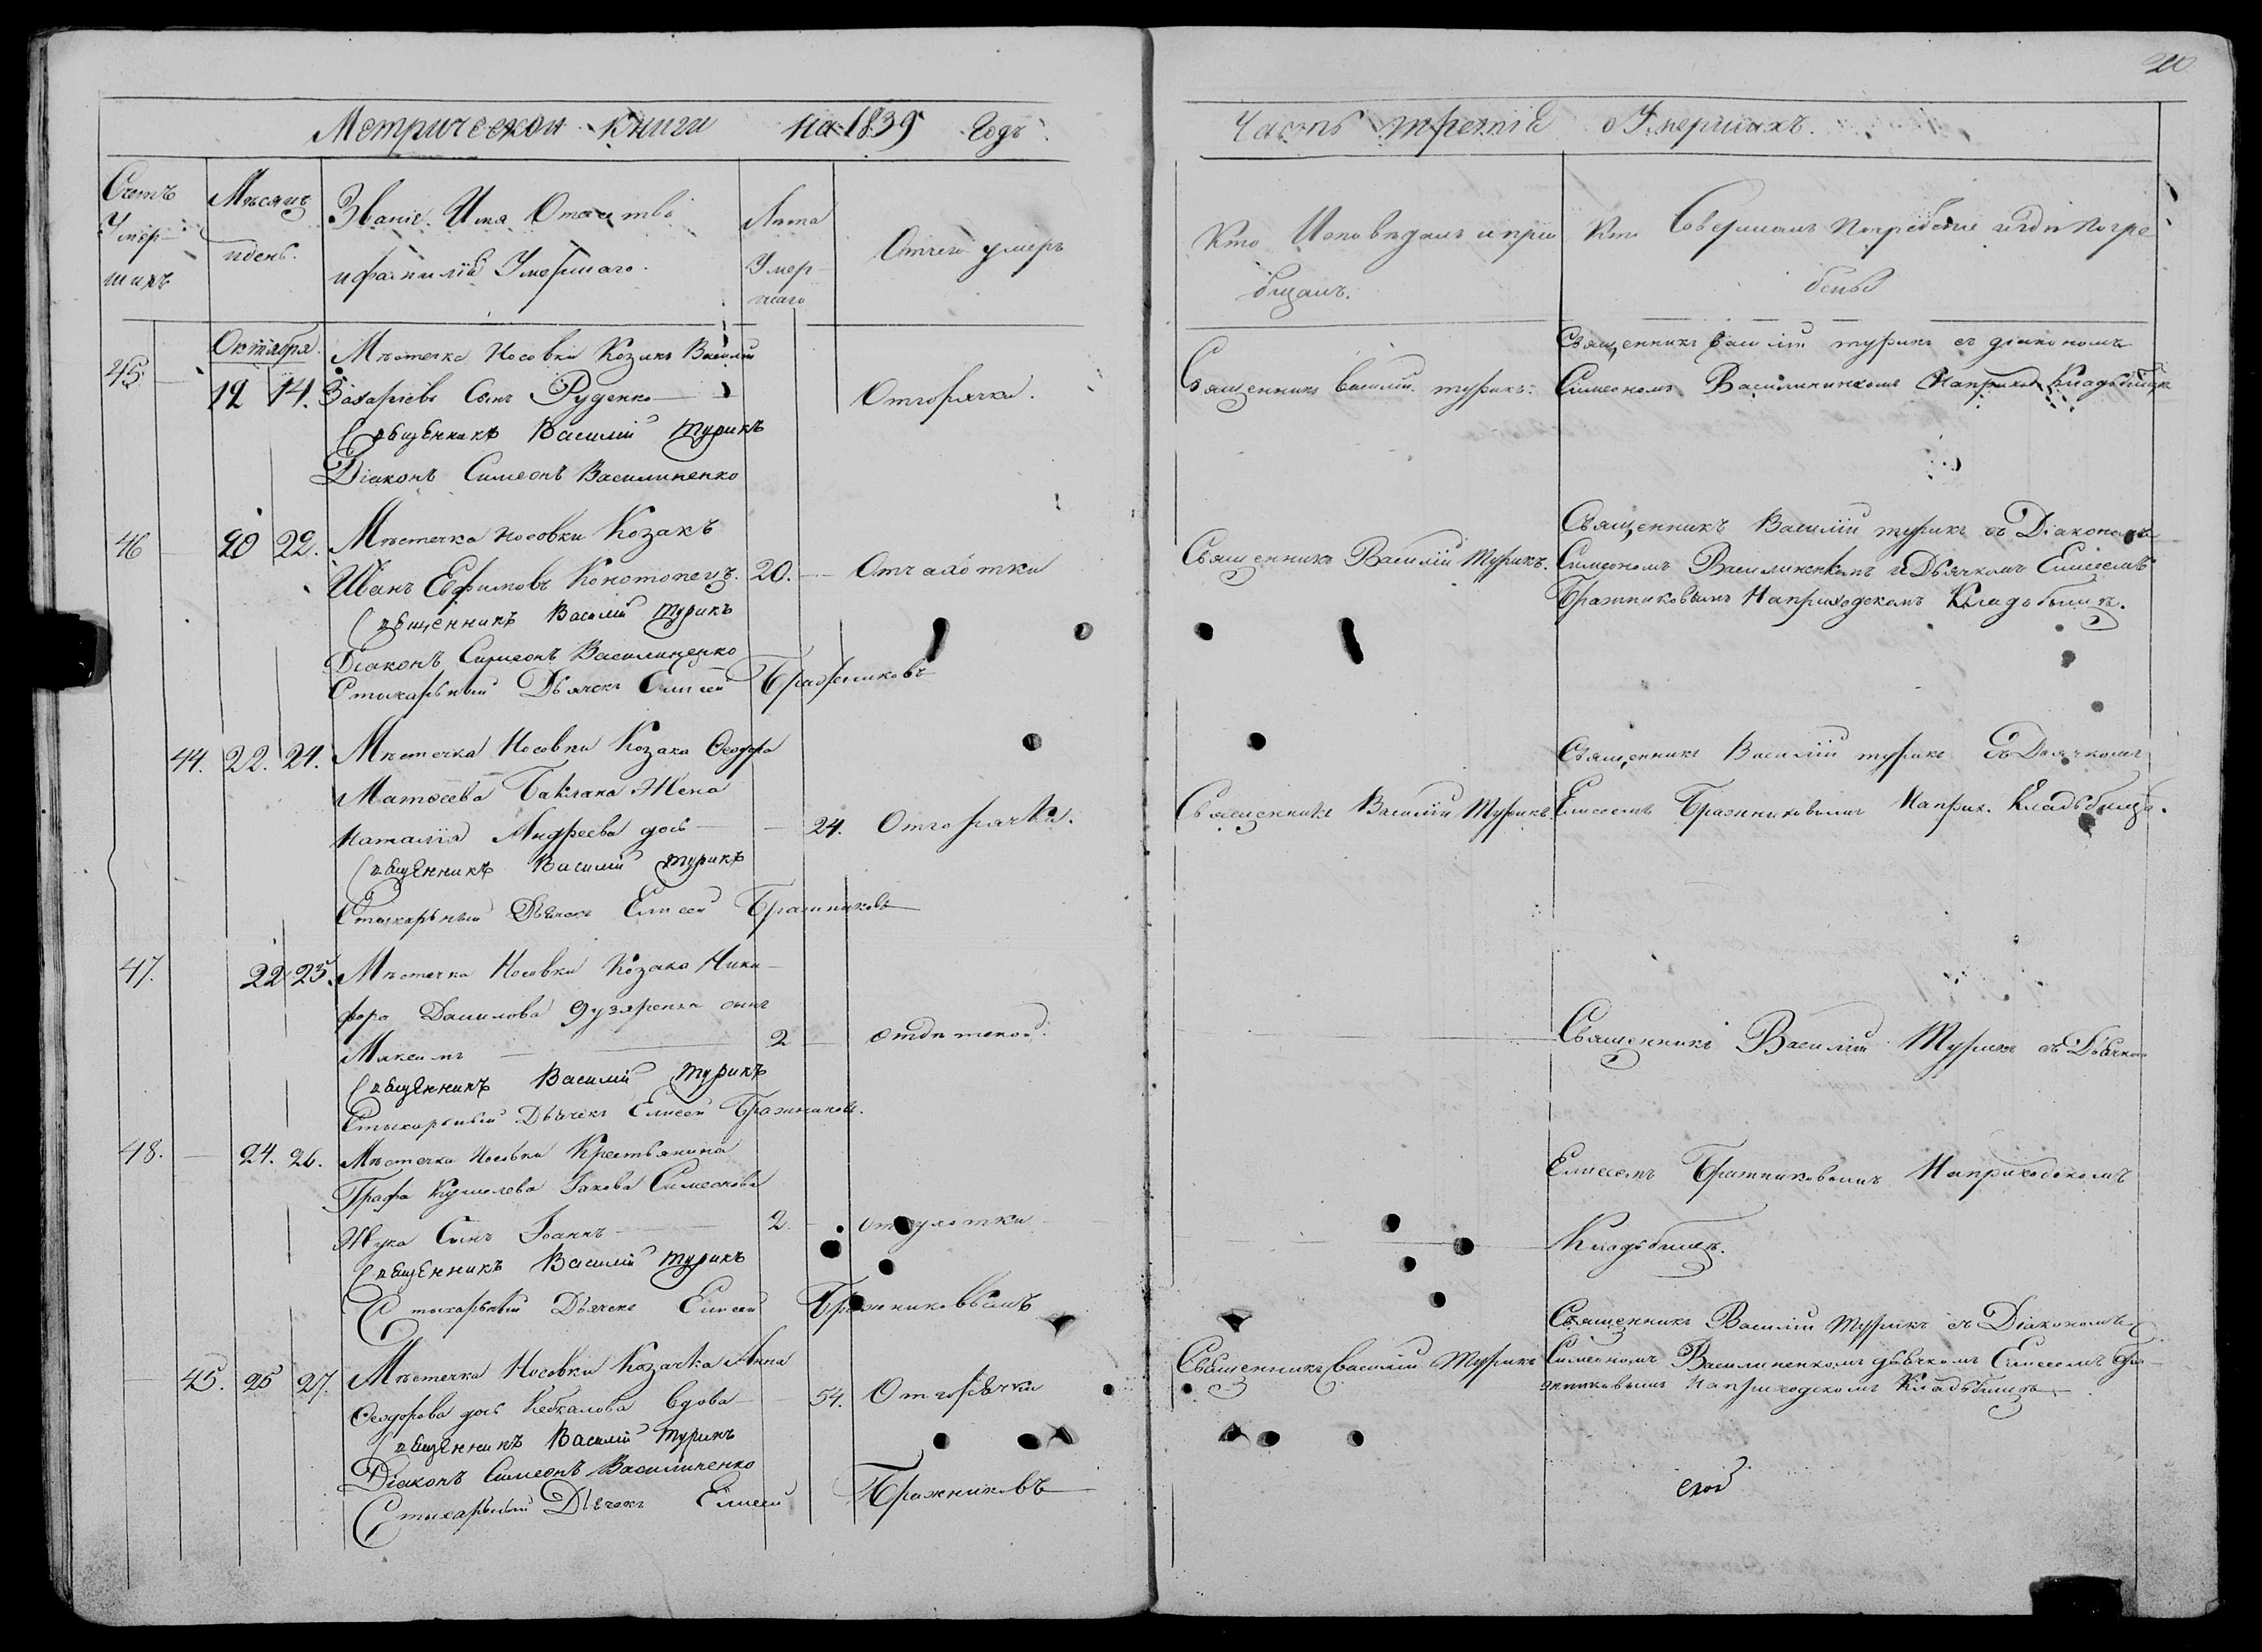 20.
Метрической Книги на 1839 Годъ.
Часть третія о Умершихъ.
Счетъ Умершихъ
Мѣсяцъ и день.
Званіе. Имя Отчество
и фамилія Умершаго.
Лѣта Умершаго
Отчего умеръ
Кто Исповѣдалъ и пріобщалъ.
Кто Совершалъ Погребеніе и гдѣ Погребены
Октября.
45. — 12 14. Мѣстечка Носовки Козакъ Василій
Захаріевъ Сынъ Руденко — Отгорячки.
Священникъ Василій Турикъ
Діаконъ Симеонъ Василиненко
Священникъ Василій турикъ.
Священникъ Василій турикъ съ діакономъ
Симеономъ Василиненкомъ Наприход Кладьбищѣ
46 — 20 22. Мѣстечка Носовки Козакъ
Иванъ Ефимовъ Конотопецъ. 20. — Отчахотки
Священникъ Василій Турикъ
Діаконъ Симеонъ Василиненко
Стыхарьный Дьячекъ Елисей Бражниковъ
Священникъ Василій Турикъ.
Священникъ Василій турикъ съ Діакономъ
Симеономъ Василиненкомъ и Дьячкомъ Елисеемъ
Бражниковымъ Наприходскомъ Кладьбищѣ.
44. 22. 24. Мѣстечка Носовки Козака Феодора
Матѳеева Баклана Жена
Наталія Андреева дочь — 24. Отгорячки.
Священникъ Василій Турикъ
Стыхарьный Дьячекъ Елисей Бражниковъ
Священникъ Василій Турикъ
Священникъ Василій турикъ съ Дьячкомъ
Елисеемъ Бражниковымъ Наприх. Кладьбищѣ.
47. 22 25. Мѣстечка Носовки Козака Ники-
фора Данилова сынъ
Максимъ — 2 —
Священникъ Василій Турикъ
Стыхарьный Дьячекъ Елисей Бражниковъ.
Священникъ Василій Турикъ съ Дьячкомъ
48. — 24. 26. Мѣстечка Носовки Крестьянина
Графа Кушелева Іакова Симеонова
Жука Сынъ Іоаннъ — 2. —
Священникъ Василій Турикъ
Стыхарьный Дьячекъ Елисей Бражниковымъ
Елисеемъ Бражниковымъ Наприходскомъ
Кладьбищѣ.
— 45. 25 27. Мѣстечка Носовки Козачка Анна
Феодорова дочь Кебкалова вдова — 54. Отгорячки
Священникъ Василій Турикъ
Діаконъ Симеонъ Василиненко
Стыхарьный Дьячекъ Елисей Бражниковъ
Священникъ Василій Турикъ
Священникъ Василій Турикъ съ Діакономъ
Симеономъ Василиненкомъ дьячкомъ Елисеемъ Бра-
жниковымъ Наприходскомъ Кладьбищѣ